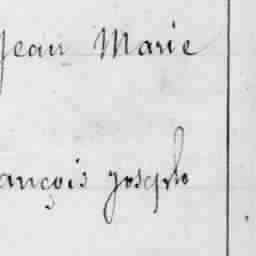 Jean Marie
ançois joseph